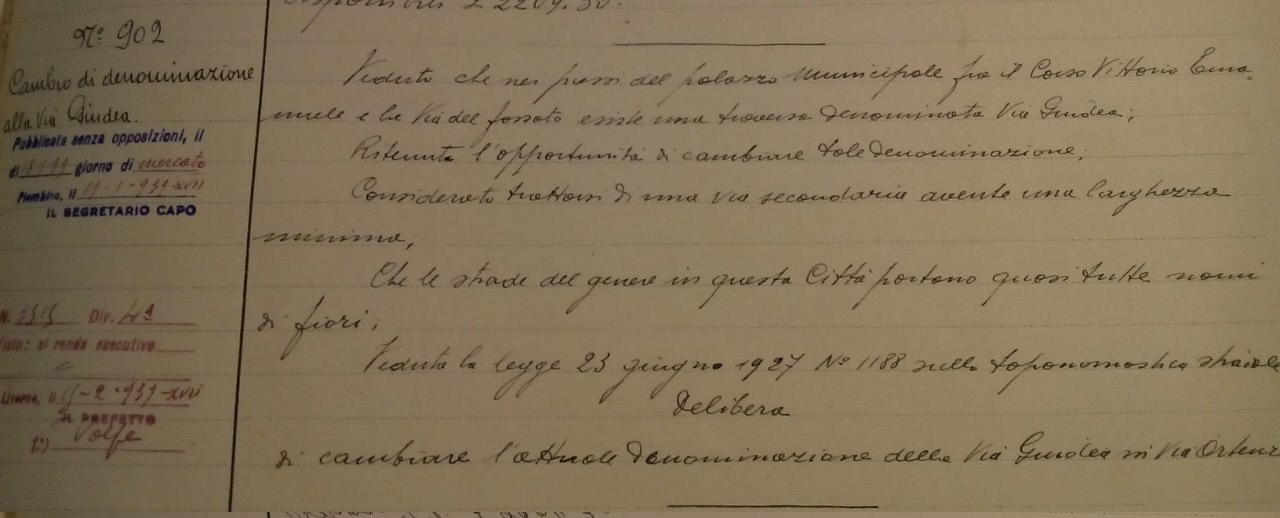 Nº 902
Cambio di denominazione
alla Via Giudea.
Pubblicata senza opposizioni, il
di giorno di mercato
Piombino, il 19-1-939-XVII
IL SEGRETARIO CAPO
N. Div. 4ª
Visto: si rende esecutivo
Livorno, il 15-2-939-XVII
IL PREFETTO
2209.50.
Veduto che nei pressi del palazzo Municipale fra il Corso Vittorio Ema=
nuele e la Via del fossato esiste una traversa denominata Via Giudea;
Ritenuta l'opportunità di cambiare tale denominazione;
Considerato trattarsi di una via secondaria avente una larghezza
minima;
Che le strade del genere in questa Città portano quasi tutte nomi
di fiori;
Veduta la legge 23 giugno 1927 Nº 1188 sulla toponomastica stradale
Delibera
di cambiare l'attuale denominazione della Via Giudea in Via